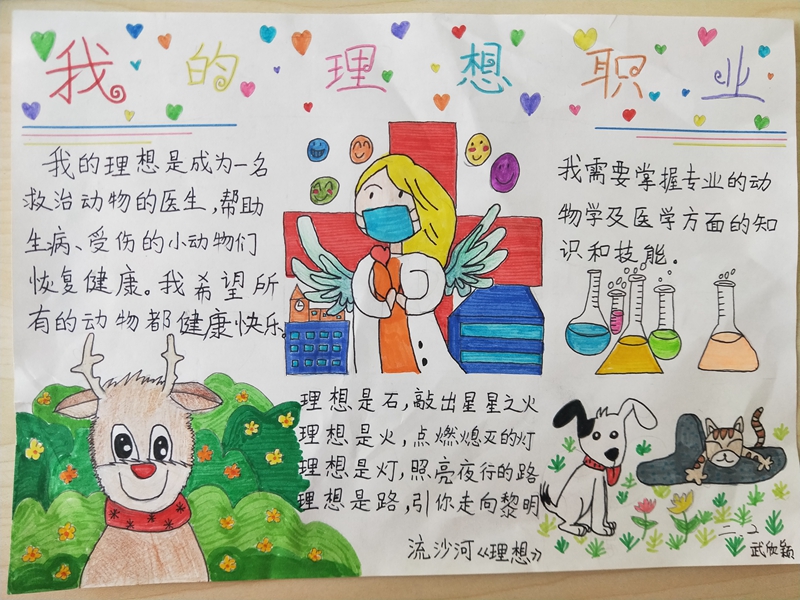 我的理想职业
我的理想是成为一名
救治动物的医生,帮助
生病、受伤的小动物们
恢复健康。我希望所
有的动物都健康快乐。
我需要掌握专业的动
物学及医学方面的知
识和技能。
理想是石,敲出星星之火
理想是火,点燃熄灭的灯
理想是灯,照亮夜行的路
理想是路,引你走向黎明
流沙河《理想》
二.2
武欣颖